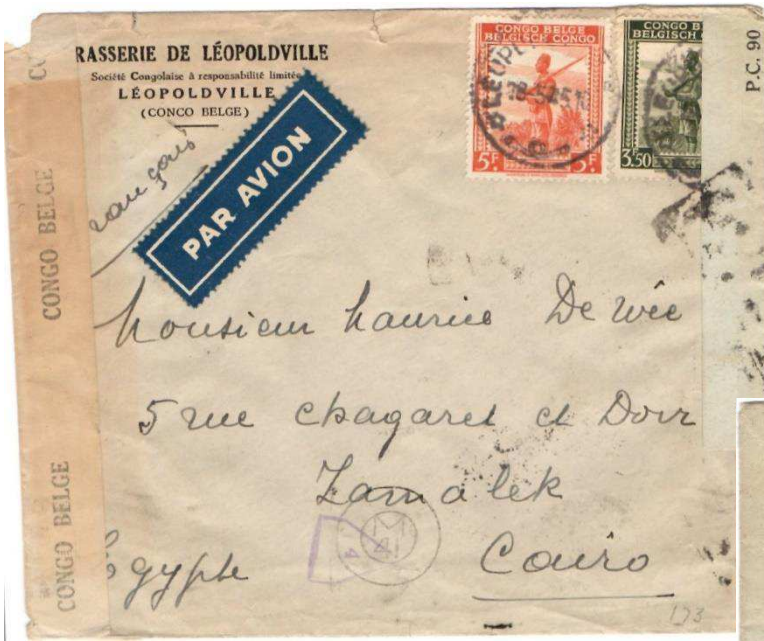 RASSERIE DE LÉOPOLDVILLE
Société Congolaise à responsabilité limitée
LÉOPOLDVILLE
(CONCO BELGE)
PAR AVION
CONGO BELGE
BELGISCH CONGO
5F 5F
CONGO B
BELGISCH
3F50
P.C. 90
CONGO BELGE
CONGO BELGE
Monsieur Maurice De Wée
5 rue chagaret el Dorr
Zamalek
Cairo
Egypte
173